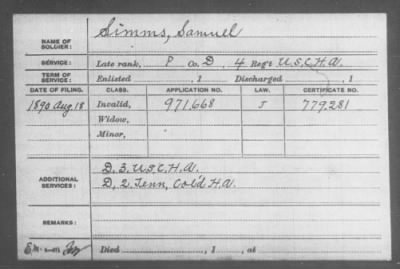 NAME OF SOLDIER: Simms, Samuel
SERVICE: Late rank, P Co. D, 4 Reg't U.S.C.H.A.
TERM OF SERVICE: Enlisted , 1 Discharged , 1
DATE OF FILING. CLASS. APPLICATION NO. LAW. CERTIFICATE NO.
1890 Aug. 18 Invalid, 971,668 J 779,281
Widow,
Minor,
ADDITIONAL SERVICES: D. 3. U.S.C.H.A.
D, 2. Tenn, Col'd H.A.
REMARKS:
Died , 1 , at